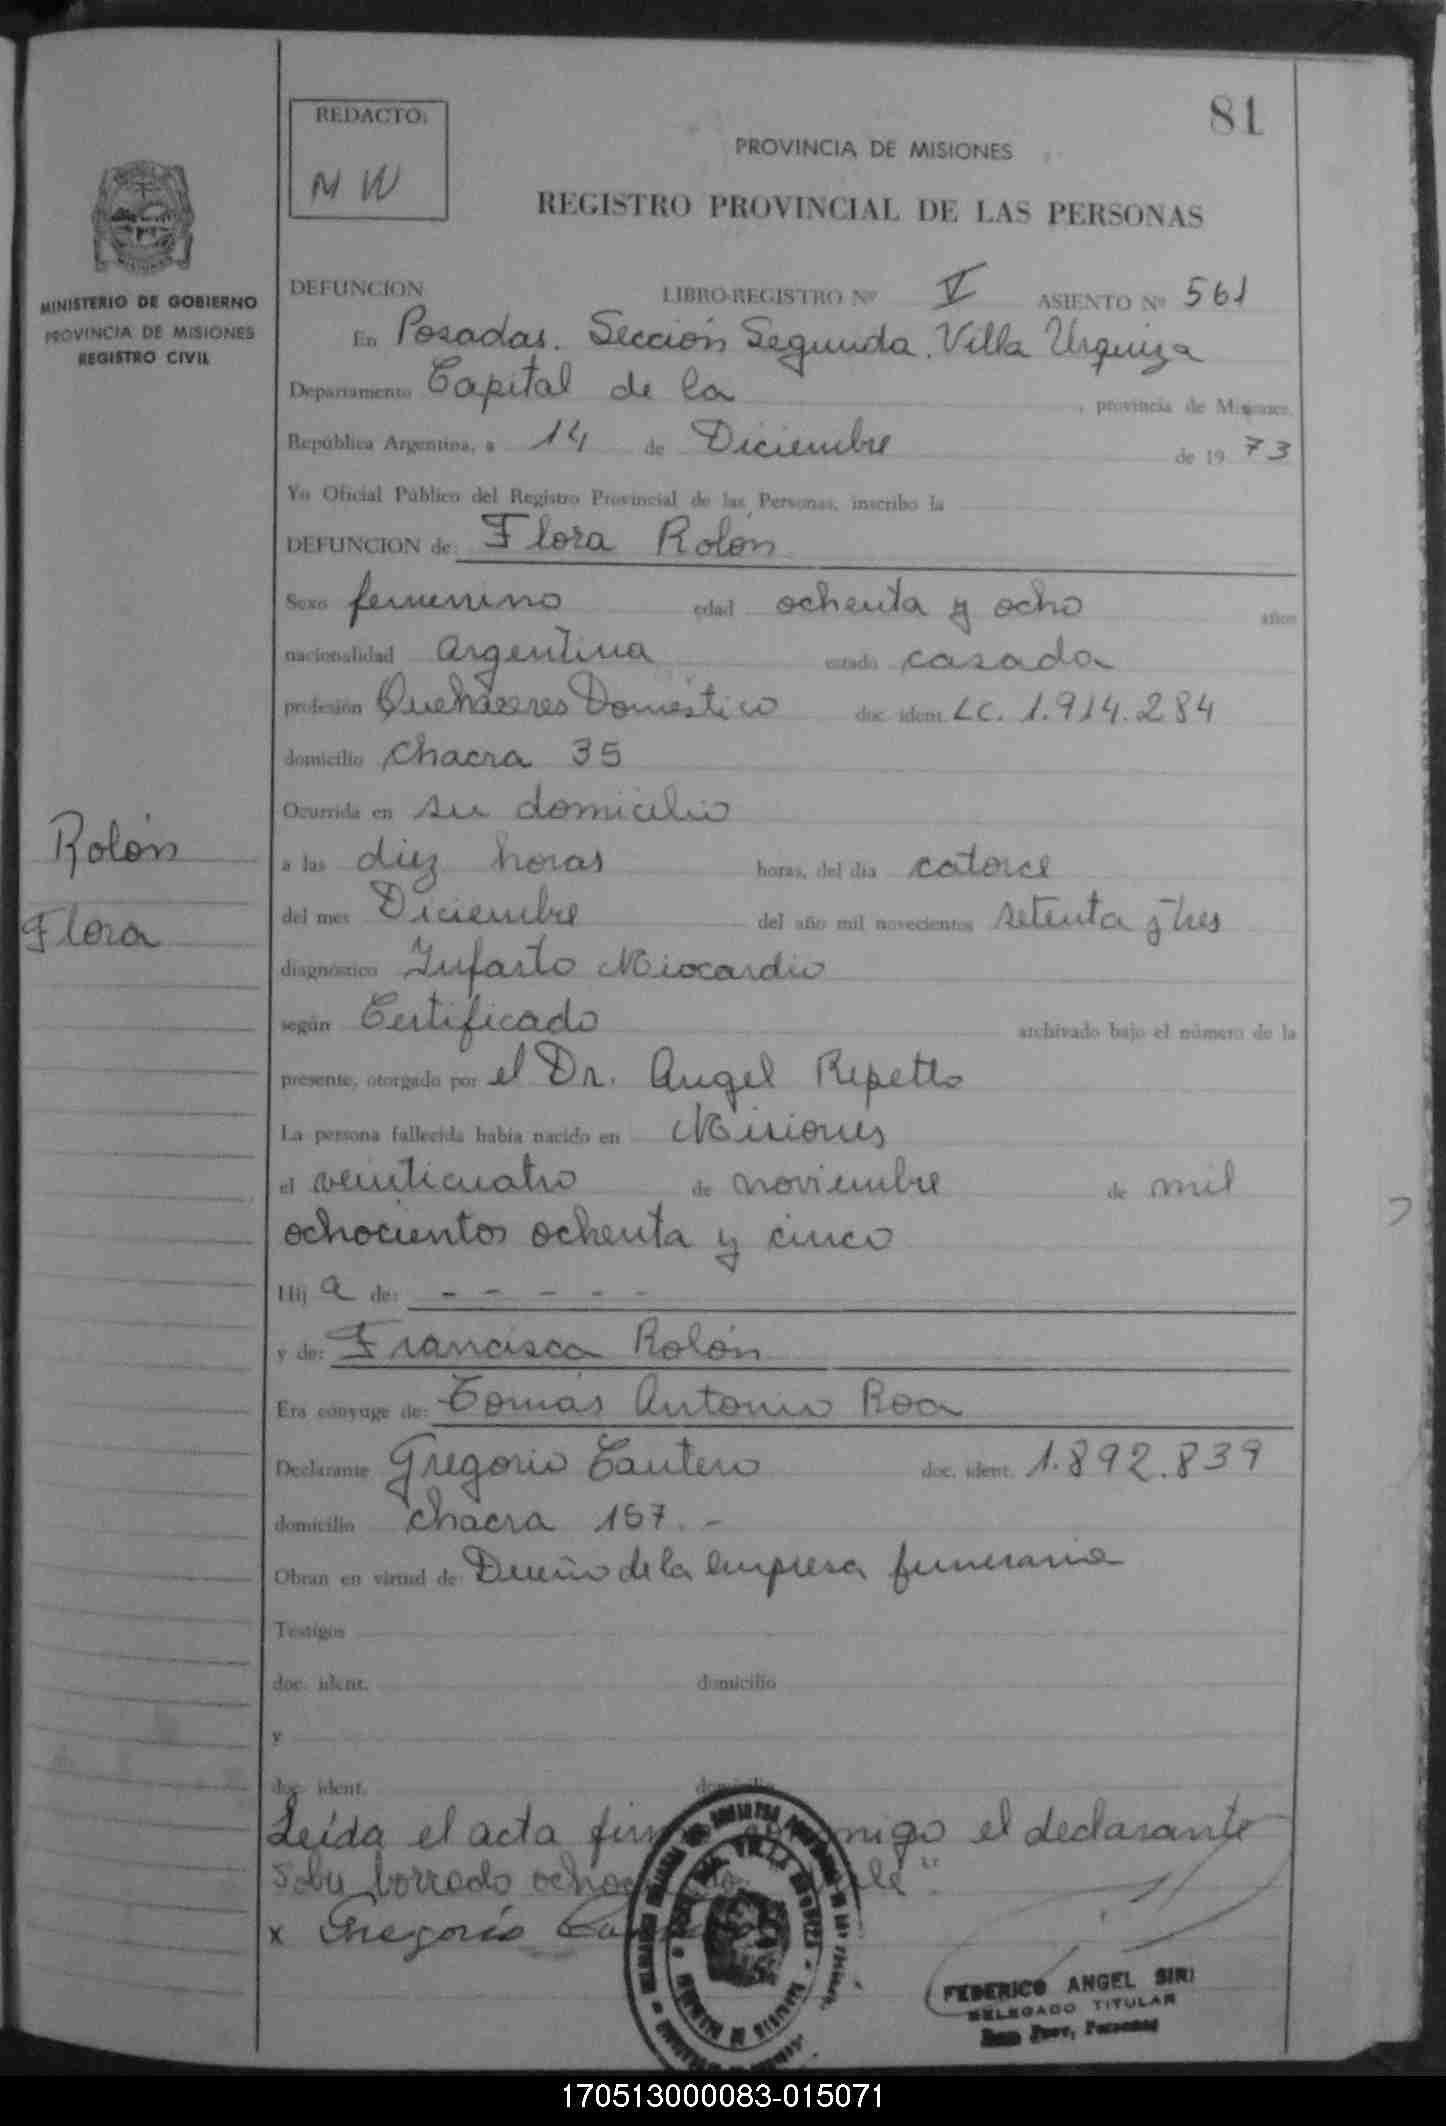 81
REDACTO:
M W
PROVINCIA DE MISIONES
REGISTRO PROVINCIAL DE LAS PERSONAS
MINISTERIO DE GOBIERNO
PROVINCIA DE MISIONES
REGISTRO CIVIL
DEFUNCION LIBRO-REGISTRO Nº V ASIENTO Nº 561
En Posadas. Sección Segunda. Villa Urquiza
Departamento Capital de la , provincia de Misiones,
República Argentina, a 14 de Diciembre de 1973
Yo Oficial Público del Registro Provincial de las Personas, inscribo la
DEFUNCION de: Flora Rolón
Sexo femenino edad ochenta y ocho años
nacionalidad argentina estado casada
profesión Quehaceres Doméstico doc. ident. LC. 1.914.284
domicilio Chacra 35
Ocurrida en su domicilio
Rolón
a las diez horas horas, del día catorce
Flora
del mes Diciembre del año mil novecientos setenta y tres
diagnóstico Infarto Miocardio
según Certificado archivado bajo el número de la
presente, otorgado por el Dr. Angel Repetto
La persona fallecida había nacido en Misiones
el veinticuatro de noviembre de mil
ochocientos ochenta y cinco
Hij a de: - - - - -
y de: Francisca Rolón
Era cónyuge de: Tomás Antonio Roa
Declarante Gregorio Cantero doc. ident. 1.892.839
domicilio Chacra 157.-
Obran en virtud de: Dueño de la empresa funeraria
Testigos
doc. ident. domicilio
y
doc. ident. domicilio
Leída el acta conmigo el declarante
Sobre borrado "vale".
x Gregorio
FEDERICO ANGEL SIRI
DELEGADO TITULAR
Prov. Personas
170513000083-015071